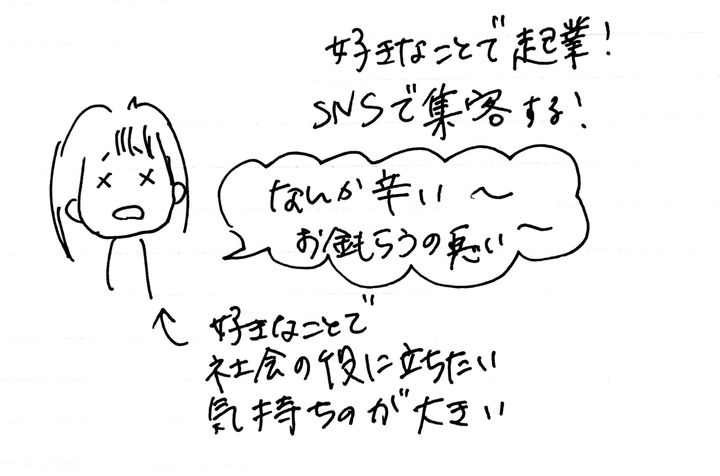 好きなことで起業!
SNSで集客する!
なんか辛い〜
お金もらうの悪い〜
好きなことで
社会の役に立ちたい
気持ちのが大きい